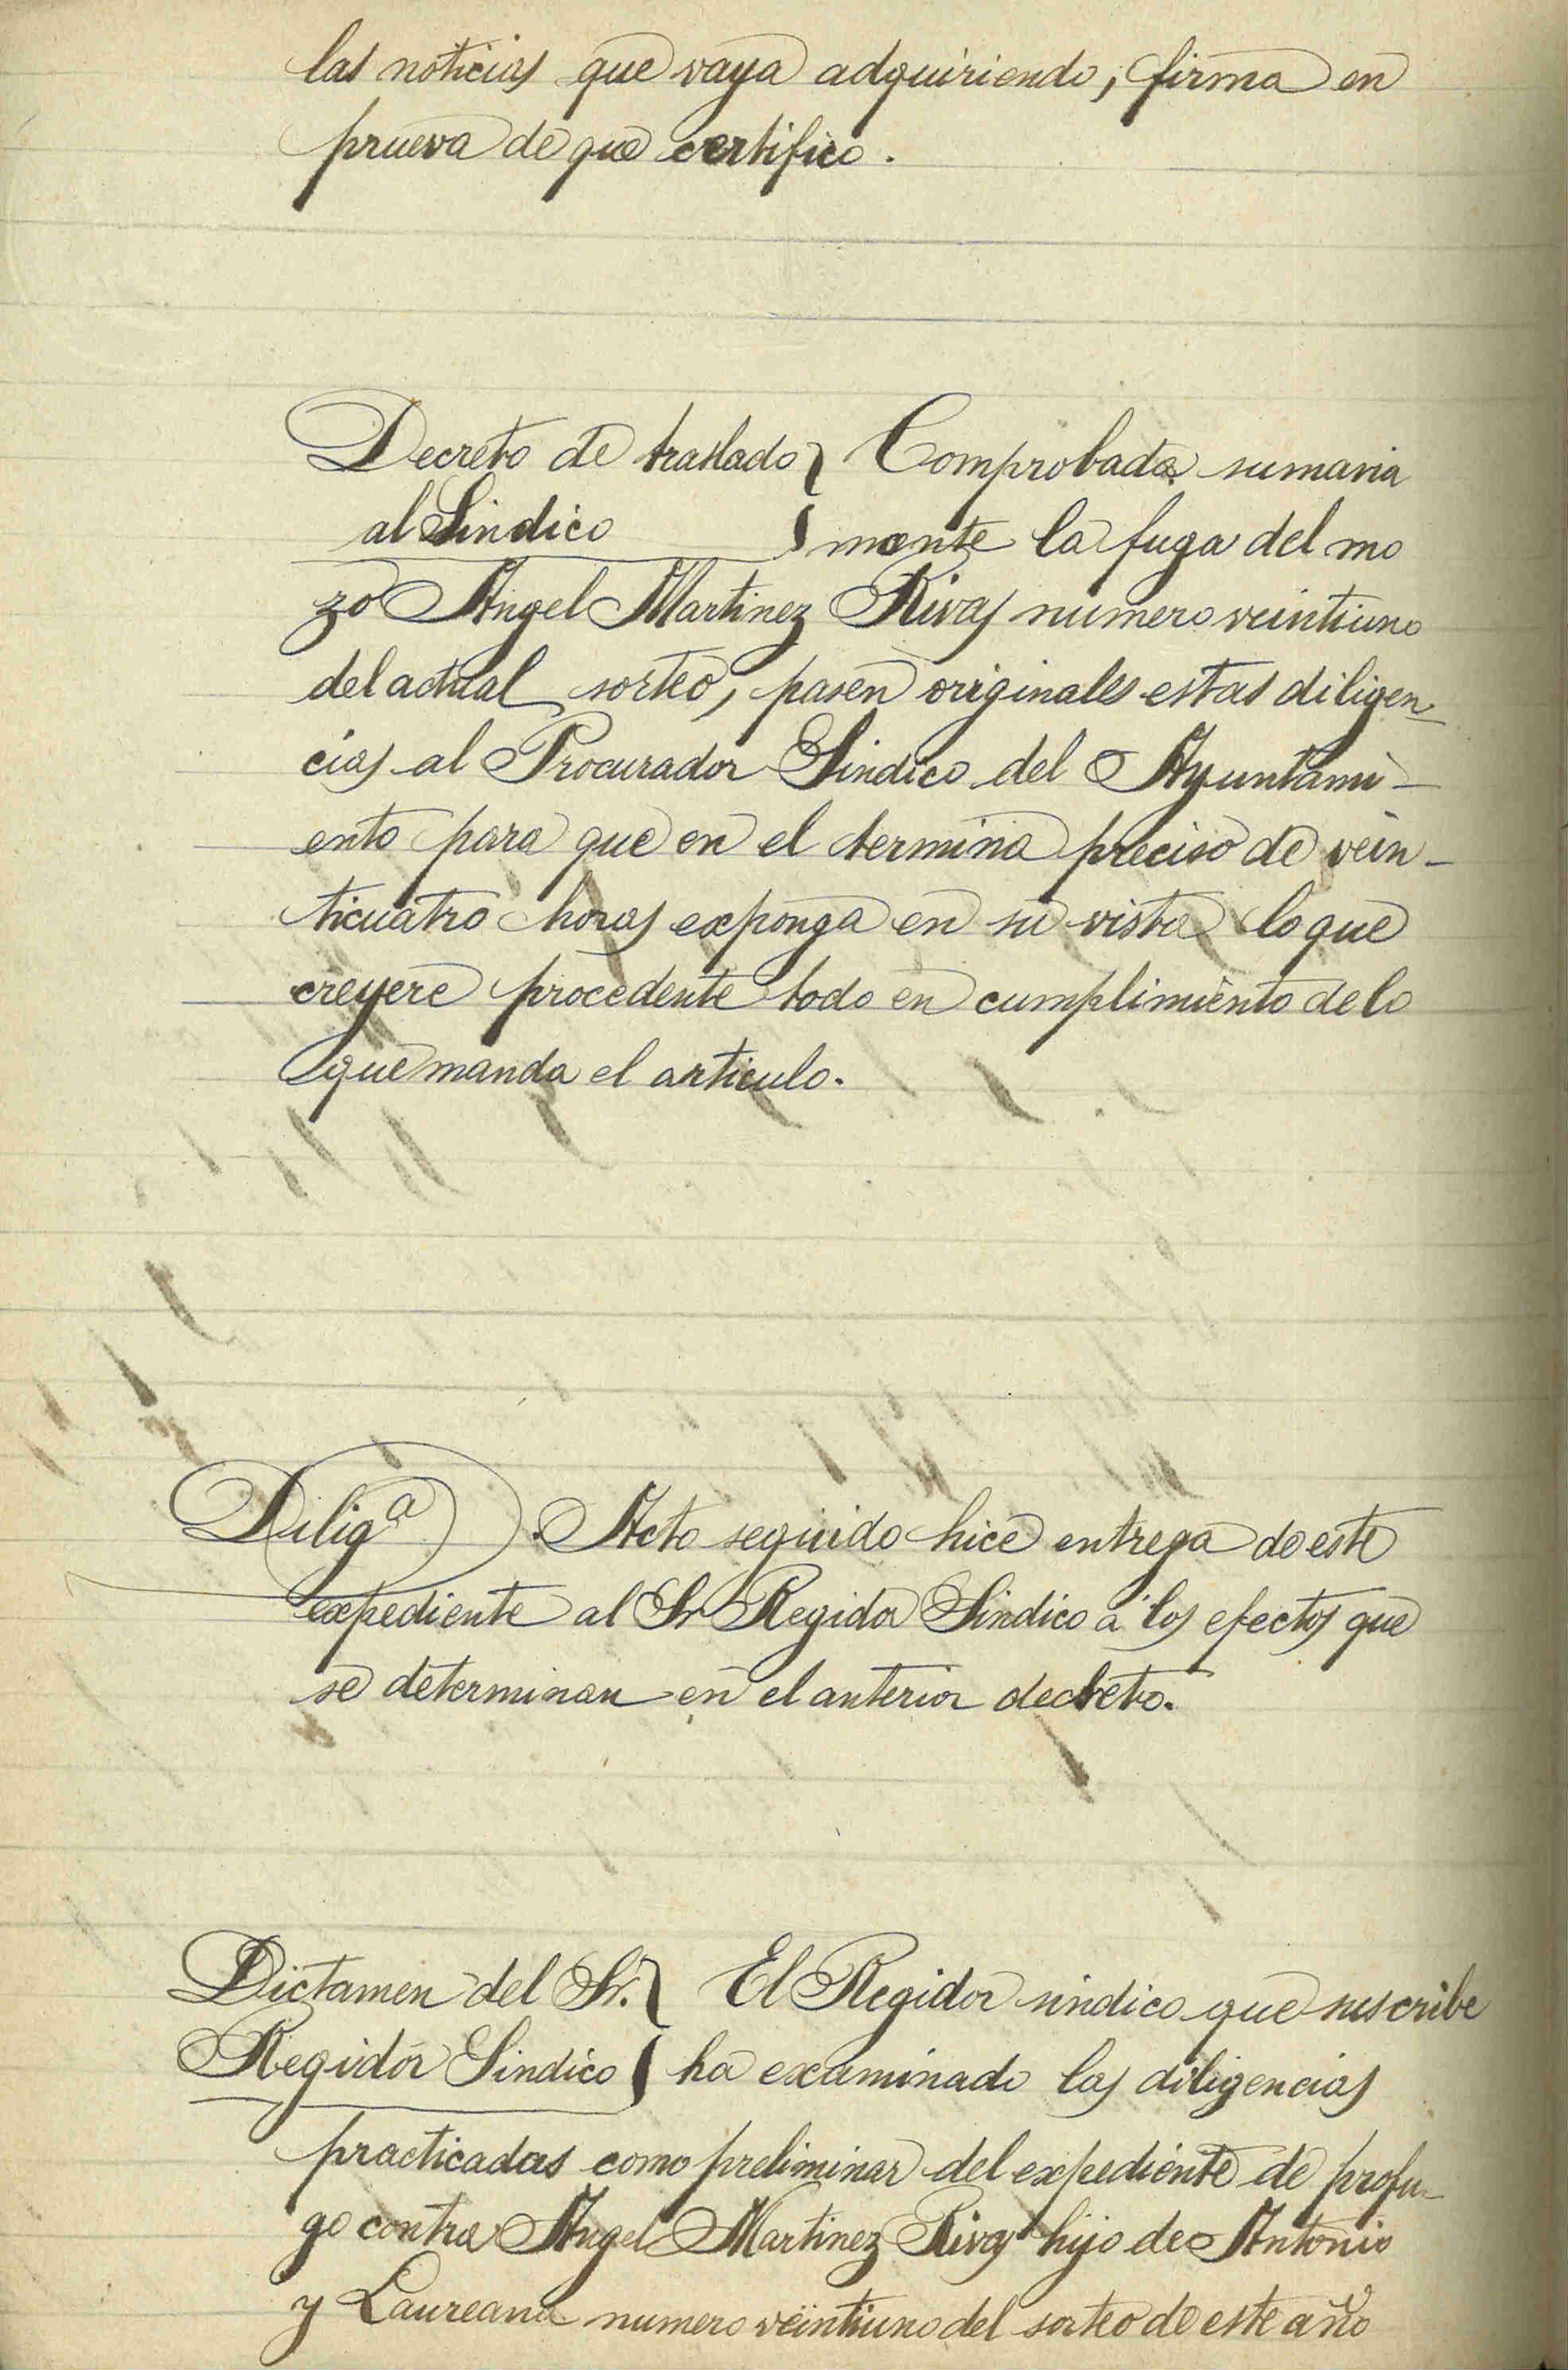 las noticias que vaya adquiriendo; firma en
prueva de que certifico.
Decreto de traslado } Comprobada sumaria
al Sindico } mente la fuga del mo
zo Angel Martinez Rivas numero veintiuno
del actual sorteo, pasen originales estas diligen-
cias al Procurador Sindico del Ayuntami-
ento para que en el termino preciso de vein-
ticuatro horas exponga en su vista lo que
creyere procedente todo en cumplimiento de lo
que manda el articulo.
Diligª). Acto seguido hice entrega de este
expediente al Sr Regidor Sindico á los efectos que
se determinan en el anterior decreto.
Dictamen del Sr. } El Regidor sindico que suscribe
Regidor Sindico } ha examinado las diligencias
practicadas como preliminar del expediente de profu-
go contra Angel Martinez Rivas hijo de Antonio
y Laureana numero veintiuno del sorteo de este año